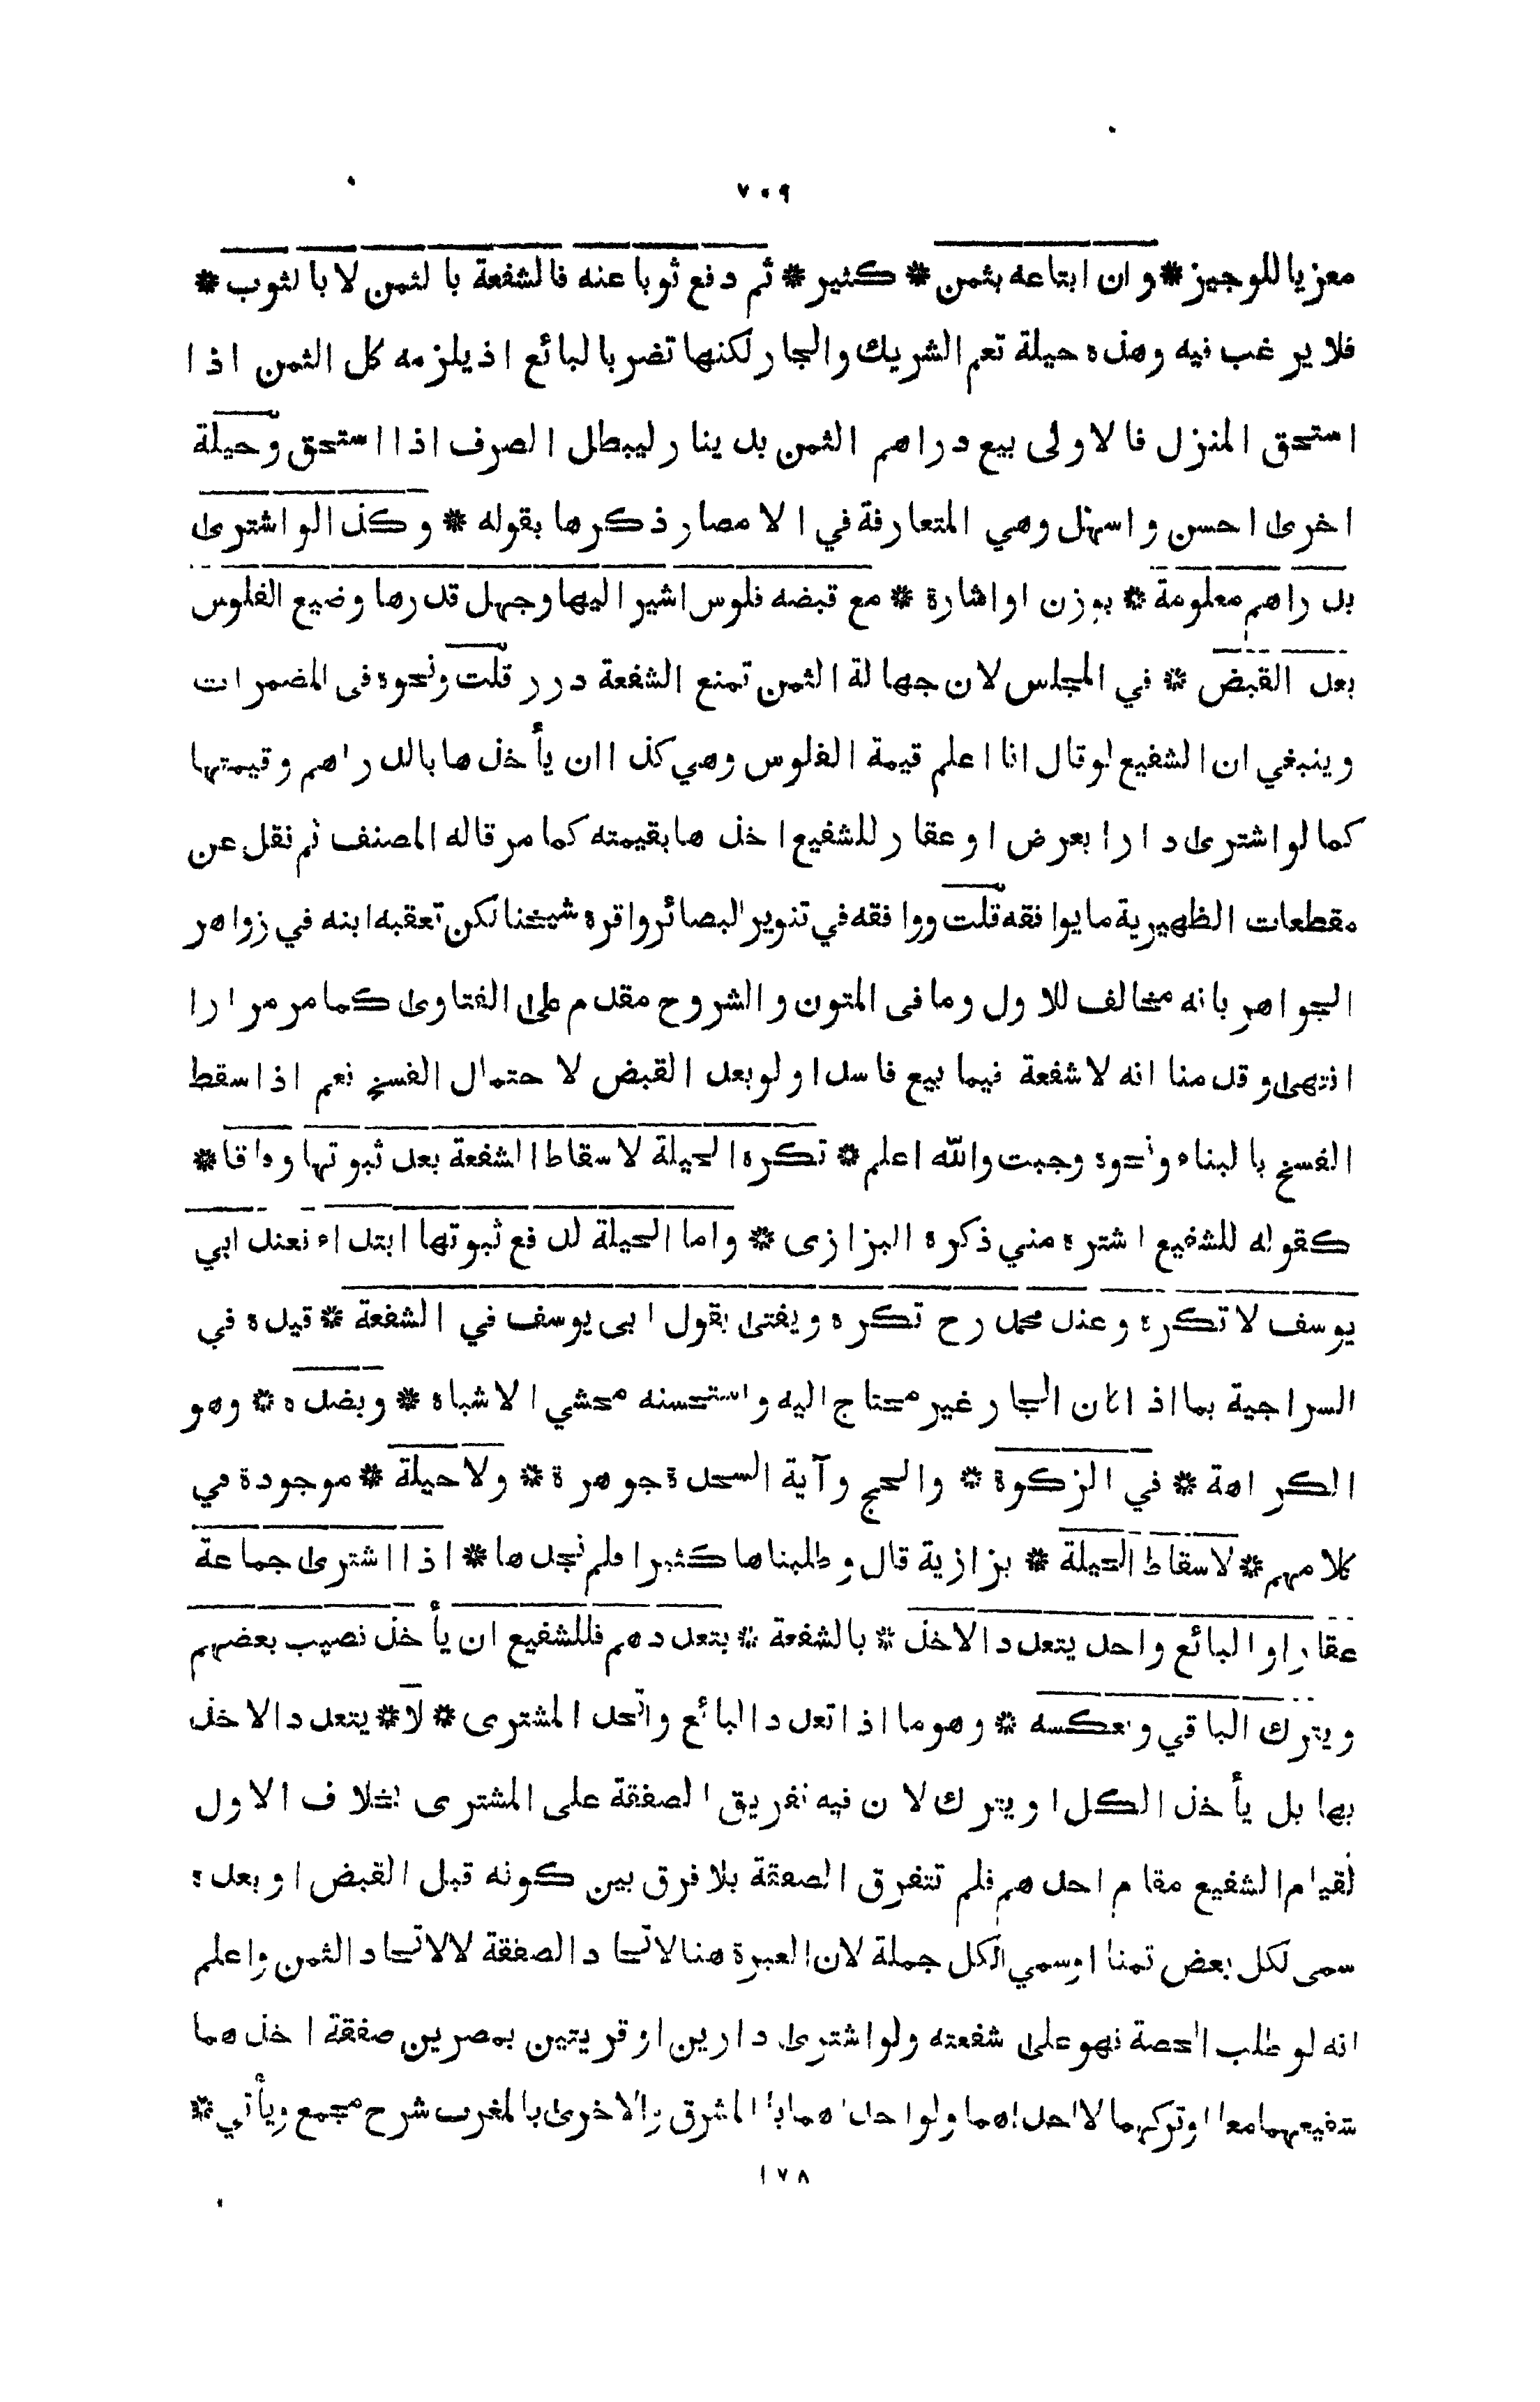 ٧٠٩
معزيا للوجيز * وان ابتاعه بثمن * كثير * ثم دفع ثوبا عنه فالشفعة بالثمن لا بالثوب *
فلا يرغب فيه وهذه حيلة تعم الشريك والجار لكنها تضر بالبائع اذ يلزمه كل الثمن اذا
استحق المنزل فالاولى بيع دراهم الثمن بدينار ليبطل الصرف اذا استحق وحيلة
اخرى احسن واسهل وهي المتعارفة في الامصار ذكرها بقوله * وكذا لو اشترى
بدراهم معلومة * بوزن او اشارة * مع قبضه فلوس اشير اليها وجهل قدرها وضيع الفلوس
بعد القبض * في المجلس لان جهالة الثمن تمنع الشفعة درر قلت ونحوه فى المضمرات
وينبغي ان الشفيع لو قال انا اعلم قيمة الفلوس وهي كذا ان يأخذها بالدراهم وقيمتها
كما لو اشترى دارا بعرض او عقار للشفيع اخذها بقيمته كما مر قاله المصنف ثم نقل عن
مقطعات الظهيرية ما يوافقه قلت ووافقه في تنوير البصائر واقره شيخنا لكن تعقبه ابنه في زواهر
الجواهر بانه مخالف للاول وما فى المتون والشروح مقدم على الفتاوى كما مر مرارا
انتهى وقدمنا انه لا شفعة فيما بيع فاسدا ولو بعد القبض لاحتمال الفسخ نعم اذا سقط
الفسخ بالبناء ونحوه وجبت والله اعلم * تكره الحيلة لاسقاط الشفعة بعد ثبوتها وفاقا *
كقوله للشفيع اشتره مني ذكره البزازى * واما الحيلة لدفع ثبوتها ابتداء فعند ابي
يوسف لا تكره وعند محمد رح تكره ويفتى بقول ابى يوسف في الشفعة * قيده في
السراجية بما اذا كان الجار غير محتاج اليه واستحسنه محشي الاشباه * وبضده * وهو
الكراهة * في الزكوة * والحج وآية السجدة جوهرة * ولا حيلة * موجودة في
كلامهم * لاسقاط الحيلة * بزازية قال وطلبناها كثيرا فلم نجدها * اذا اشترى جماعة
عقارا والبائع واحد يتعدد الاخذ * بالشفعة * بتعددهم فللشفيع ان يأخذ نصيب بعضهم
ويترك الباقي وبعكسه * وهو ما اذا تعدد البائع واتحد المشترى * لا * يتعدد الاخذ
بها بل يأخذ الكل او يترك لان فيه تفريق الصفقة على المشترى بخلاف الاول
لقيام الشفيع مقام احدهم فلم تتفرق الصفقة بلا فرق بين كونه قبل القبض او بعده
سمى لكل بعض ثمنا او سمي الكل جملة لان العبرة هنا لاتحاد الصفقة لا لاتحاد الثمن واعلم
انه لو طلب الحصة فهو على شفعته ولو اشترى دارين او قريتين بمصرين صفقة اخذهما
شفيعهما معا او تركهما لا احدهما ولو احدهما بالمشرق والاخرى بالمغرب شرح مجمع ويأتي *
١٧٨